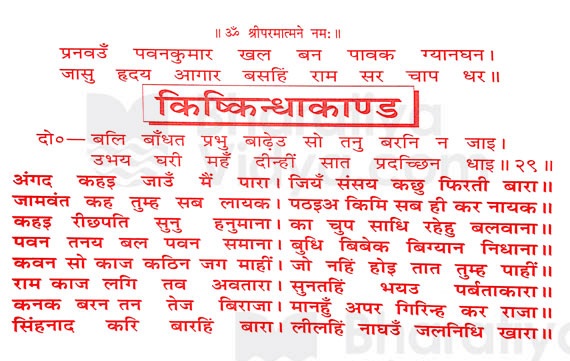 ॥ ॐ श्रीपरमात्मने नमः॥
प्रनवउँ पवनकुमार खल बन पावक ग्यानघन।
जासु हृदय आगार बसहिं राम सर चाप धर॥
किष्किन्धाकाण्ड
दो०— बलि बाँधत प्रभु बाढ़ेउ सो तनु बरनि न जाइ।
उभय घरी महँ दीन्हीं सात प्रदच्छिन धाइ॥ २९॥
अंगद कहइ जाउँ मैं पारा। जियँ संसय कछु फिरती बारा॥
जामवंत कह तुम्ह सब लायक। पठइअ किमि सब ही कर नायक॥
कहइ रीछपति सुनु हनुमाना। का चुप साधि रहेहु बलवाना॥
पवन तनय बल पवन समाना। बुधि बिबेक बिग्यान निधाना॥
कवन सो काज कठिन जग माहीं। जो नहिं होइ तात तुम्ह पाहीं॥
राम काज लगि तव अवतारा। सुनतहिं भयउ पर्बताकारा॥
कनक बरन तन तेज बिराजा। मानहुँ अपर गिरिन्ह कर राजा॥
सिंहनाद करि बारहिं बारा। लीलहिं नाघउँ जलनिधि खारा॥